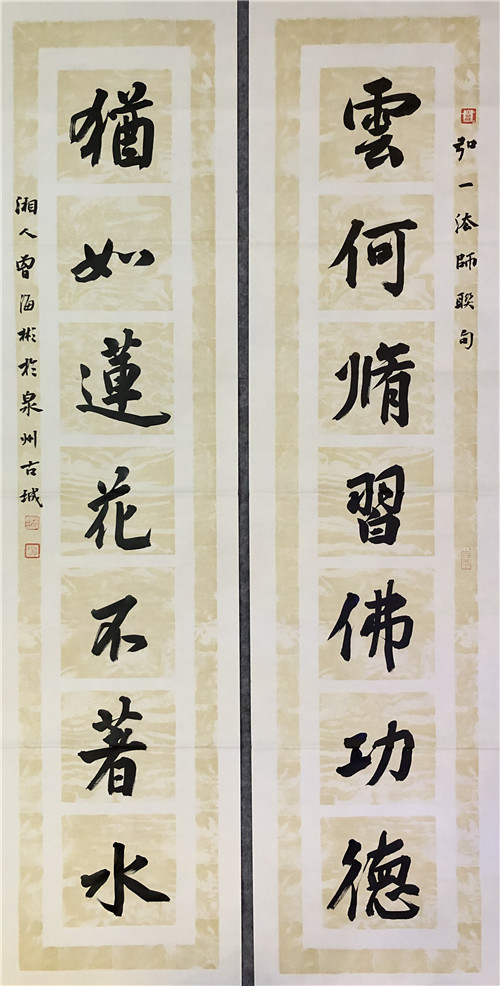 弘一法師联句
雲何脩習佛功德
猶如蓮花不著水
湘人曾海彬於泉州古城